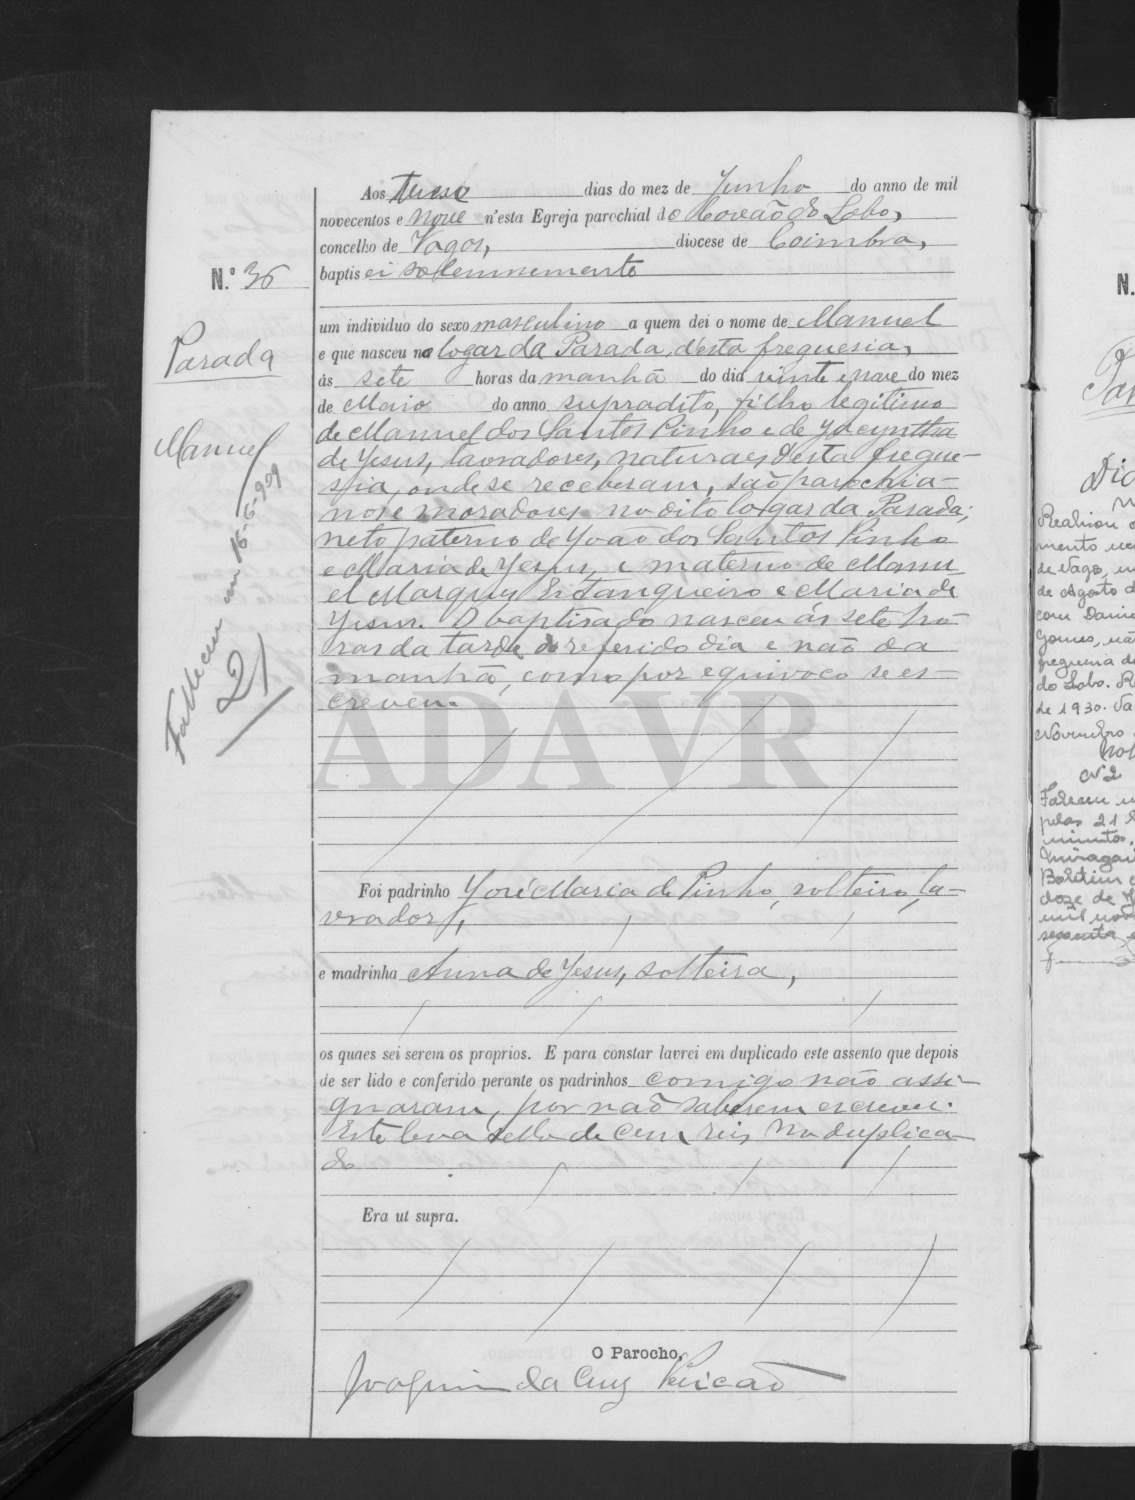 Aos treze dias do mez de Junho do anno de mil
novecentos e nove n'esta Egreja parochial de Covão do Lobo,
concelho de Vagos, diocese de Coimbra,
baptisei solemnemente
N.º 36
um individuo do sexo masculino a quem dei o nome de Manuel
e que nasceu no logar da Parada, d'esta freguesia,
ás sete horas da manhã do dia vinte e nove do mez
de Maio do anno supradito, filho legitimo
de Manuel dos Santos Pinho e de Jacyntha
de Jesus, lavradores, naturaes d'esta fregue-
sia, onde se receberam, são parochia-
nos e moradores no dito logar da Parada;
neto paterno de João dos Santos Pinho
e Maria de Jesus, e materno de Manu
el Marques Estanqueiro e Maria de
Jesus. O baptisado nasceu ás sete ho
ras da tarde do referido dia e não da
manhã, como por equivoco se es-
creveu.
Parada
Manuel
Falleceu em 16-6-909
21
ADAVR
Foi padrinho José Maria de Pinho, solteiro, la-
vrador,
e madrinha Anna de Jesus, solteira,
os quaes sei serem os proprios. E para constar lavrei em duplicado este assento que depois
de ser lido e conferido perante os padrinhos comigo não assi-
gnaram, por não saberem escrever.
Este leva sello de cem reis no duplica-
do
Era ut supra.
O Parocho,
Joaquim da Cruz
N.
Realisou
mento
de Vagos,
de Agosto
com
Gomes,
freguesia
do Lobo.
de 1930.
Novembro
Nº 2
Faleceu
pelas 21
minutos,
Boletim
doze de
mil
sessenta